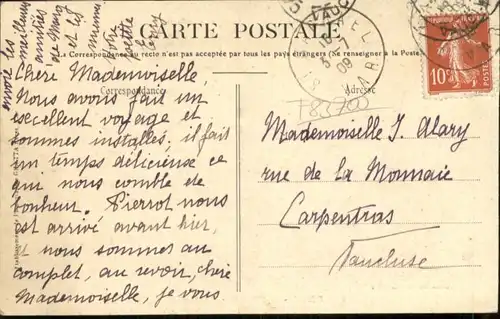 CARTE POSTALE
La Correspondance au recto n'est pas acceptée par tous les pays étrangers (Se renseigner à la Poste)
Correspondance
Adresse
Chère Mademoiselle,
Nous avons fait un
excellent voyage et
sommes installés; il fait
un temps délicieuse ce
qui nous comble de
bonheur. Pierrot nous
est arrivé avant hier,
nous sommes au
complet, au revoir, chère
Mademoiselle, je vous
envoie les
meilleures
amitiés
de
et les
miennes
Mademoiselle J. Alary
rue de la Monnaie
Carpentras
Vaucluse
10
5
09